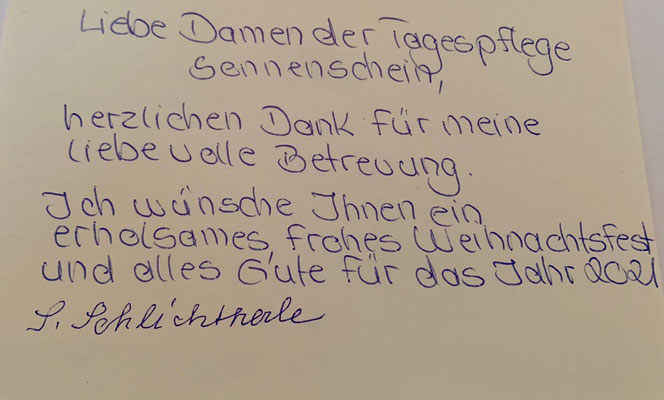 Liebe Damen der Tagespflege
Sonnenschein,
herzlichen Dank für meine
liebevolle Betreuung.
Ich wünsche Ihnen ein
erholsames, frohes Weihnachtsfest
und alles Gute für das Jahr 2021
S. Schlichtherle